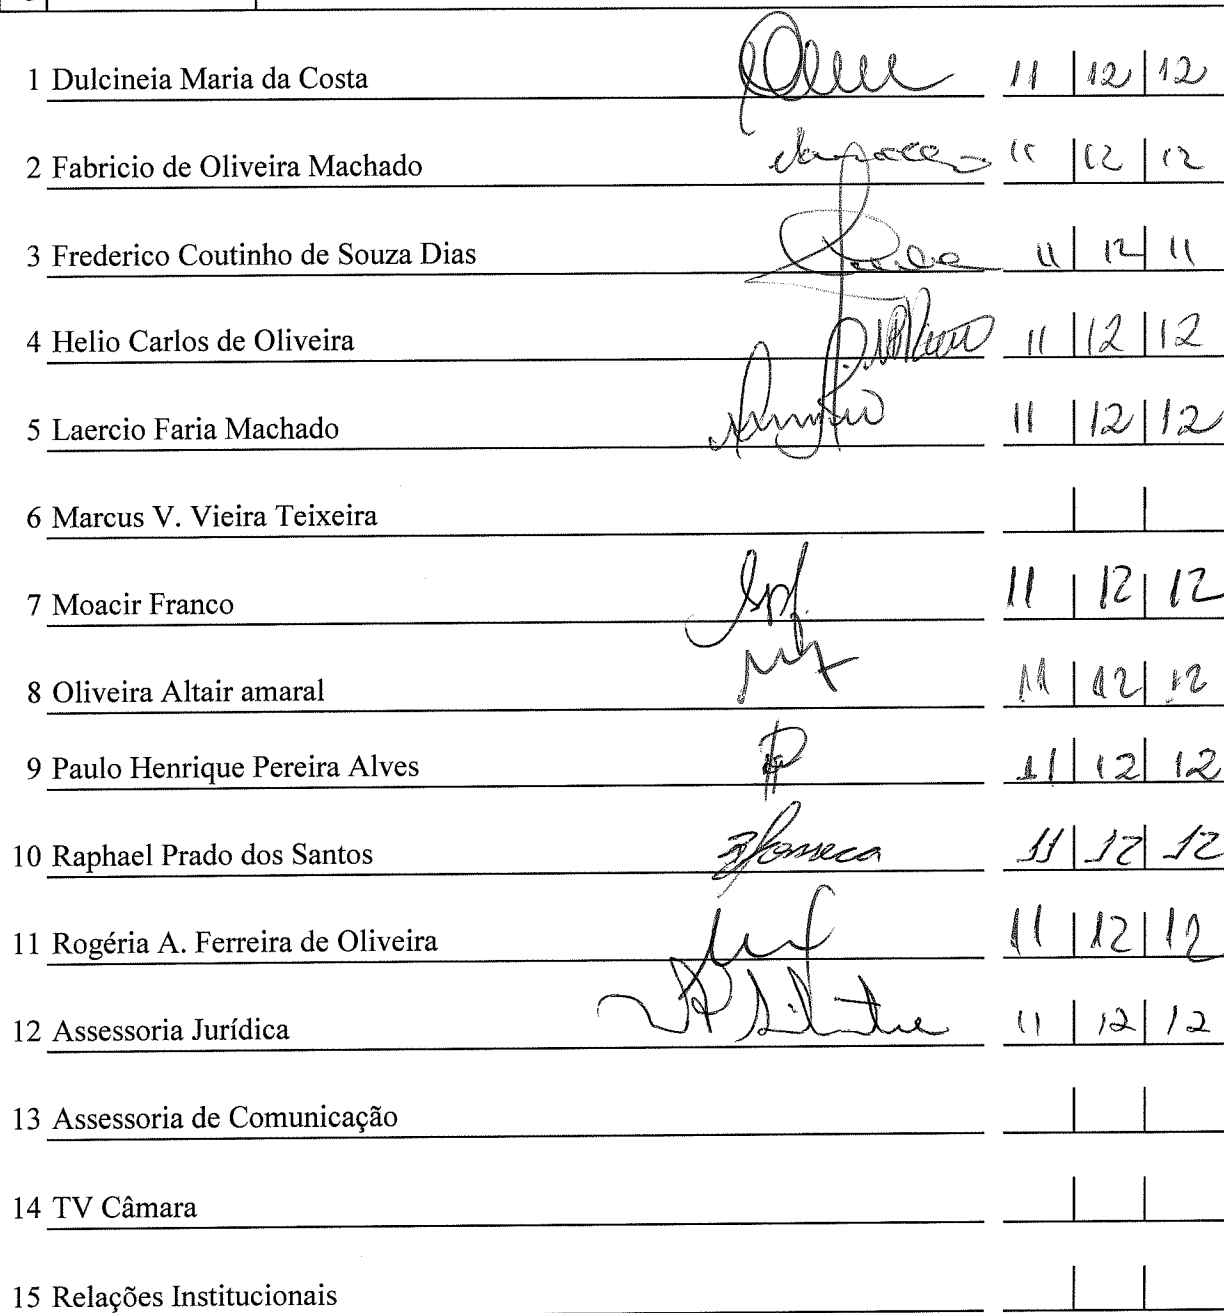 1 Dulcineia Maria da Costa 11 | 12 | 12
2 Fabricio de Oliveira Machado 11 | 12 | 12
3 Frederico Coutinho de Souza Dias 11 | 12 | 11
4 Helio Carlos de Oliveira 11 | 12 | 12
5 Laercio Faria Machado 11 | 12 | 12
6 Marcus V. Vieira Teixeira
7 Moacir Franco 11 | 12 | 12
8 Oliveira Altair amaral 11 | 12 | 12
9 Paulo Henrique Pereira Alves 11 | 12 | 12
10 Raphael Prado dos Santos Fonseca 11 | 12 | 12
11 Rogéria A. Ferreira de Oliveira 11 | 12 | 12
12 Assessoria Jurídica 11 | 12 | 12
13 Assessoria de Comunicação
14 TV Câmara
15 Relações Institucionais